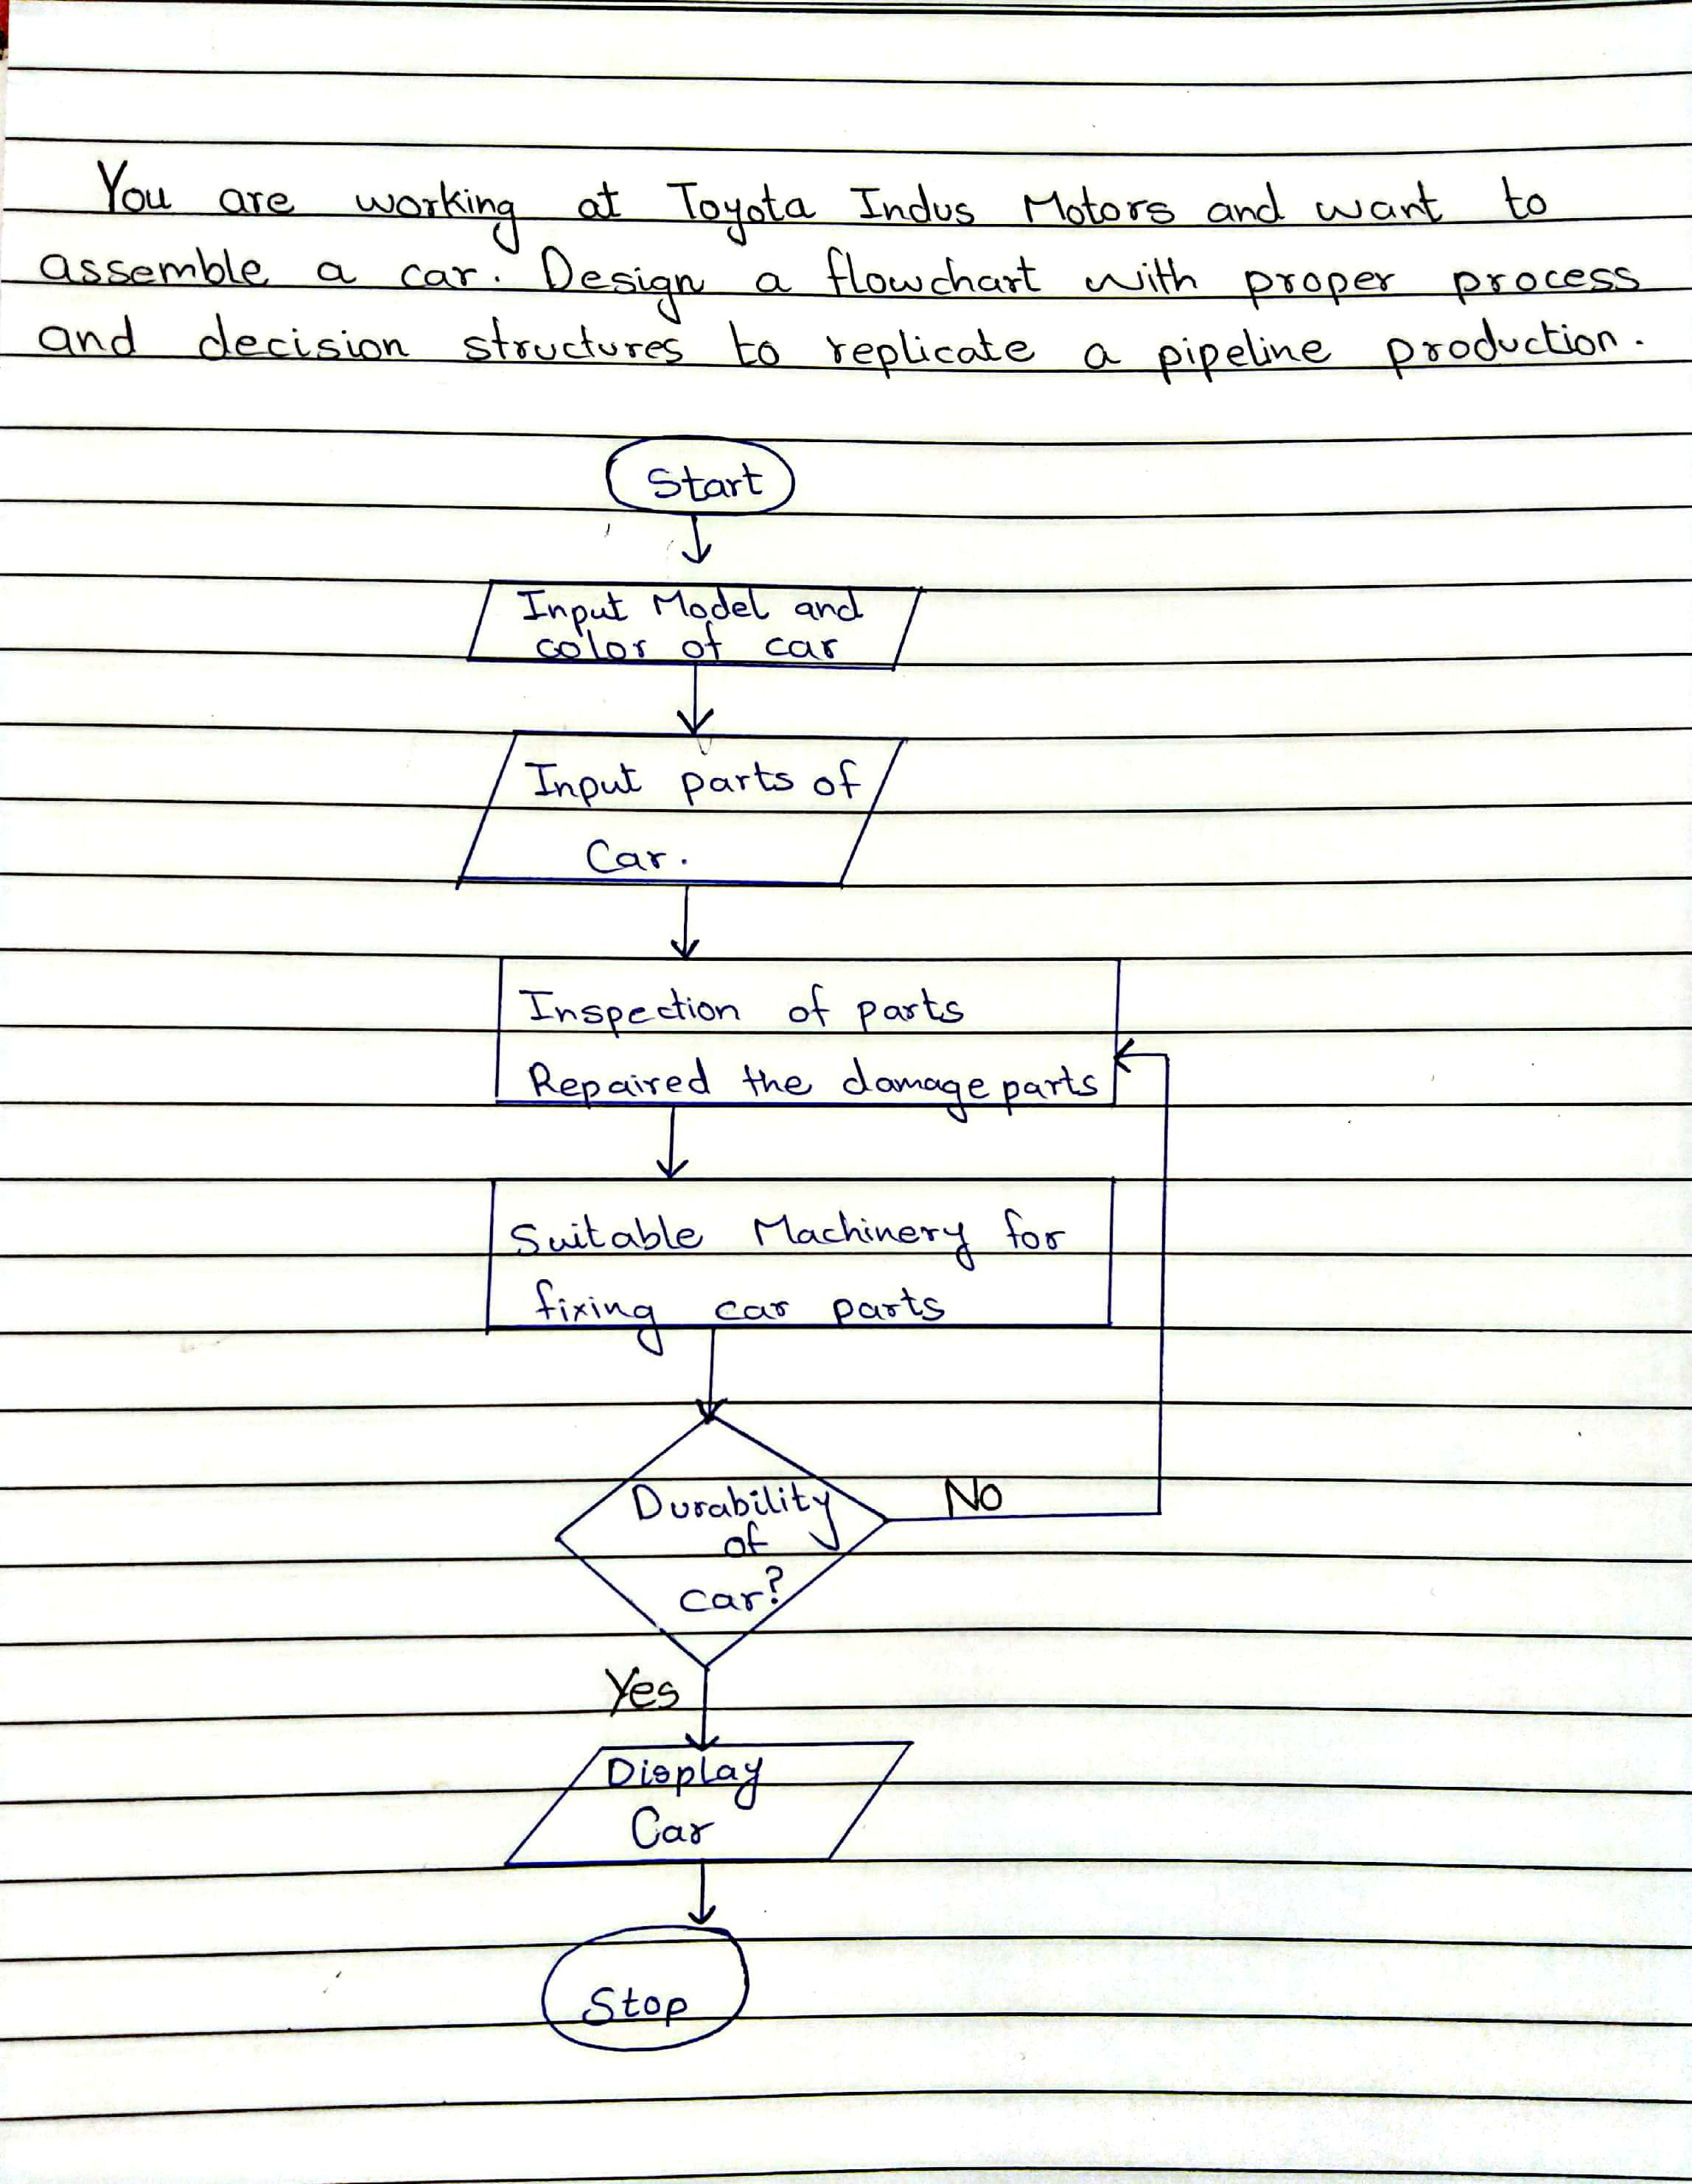 You are working at Toyota Indus Motors and want to
assemble a car. Design a flowchart with proper process
and decision structures to replicate a pipeline production.
Start
Input Model and
color of car
Input parts of
Car.
Inspection of parts
Repaired the damage parts
Suitable Machinery for
fixing car parts
Durability
of
car?
No
Yes
Display
Car
Stop